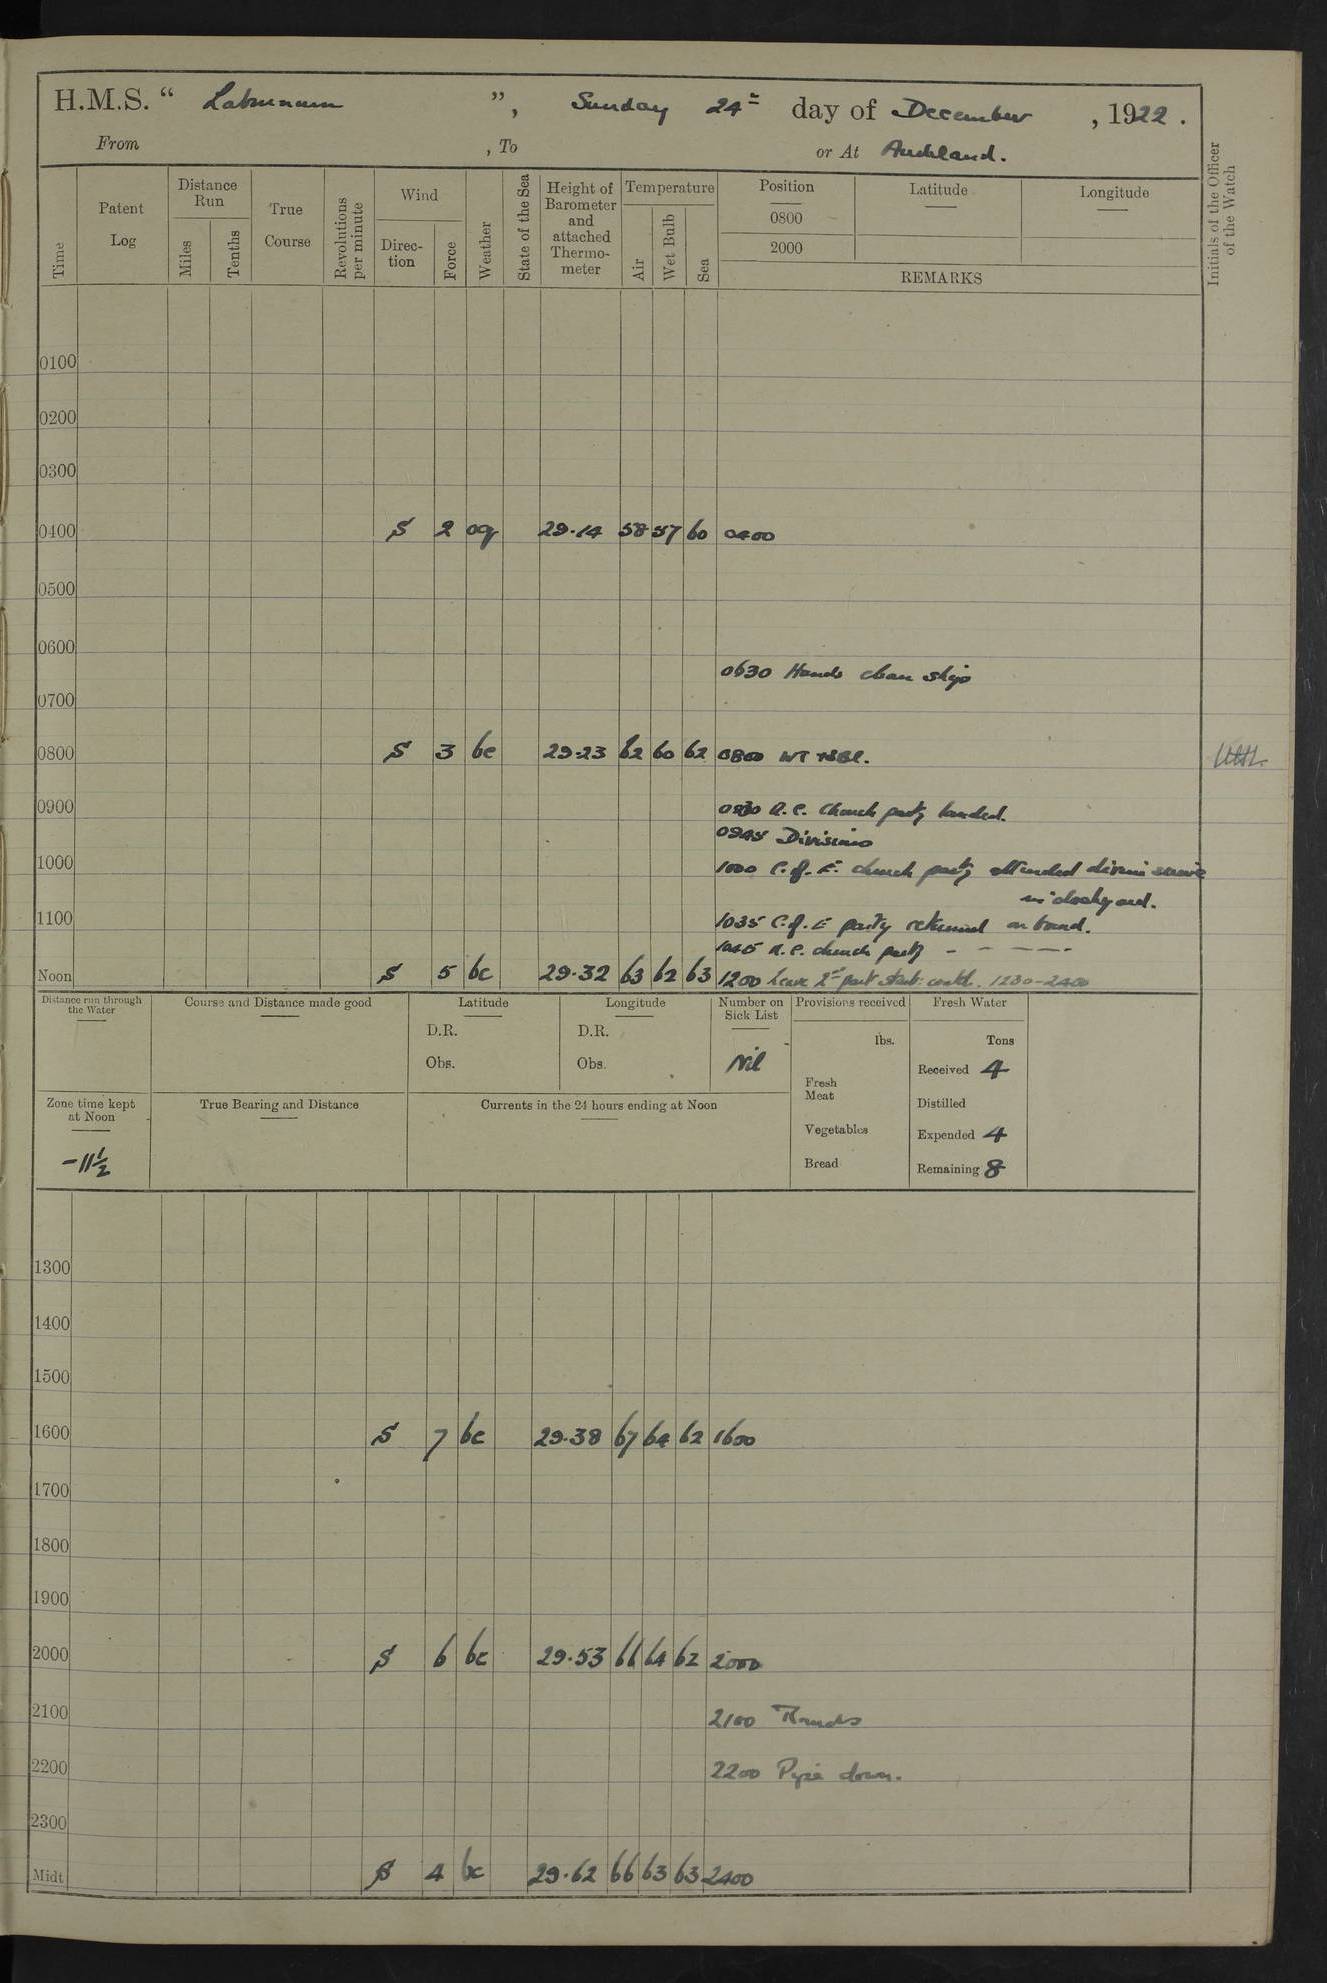 H.M.S. “ Laburnum ”, Sunday 24th day of December, 1922.
From , To or At Auckland.
Time
Patent Log
Distance Run
Miles
Tenths
True Course
Revolutions per minute
Wind
Direction
Force
Weather
State of the Sea
Height of Barometer and attached Thermometer
Temperature
Air
Wet Bulb
Sea
Position
0800
2000
Latitude
Longitude
REMARKS
Initials of the Officer of the Watch
0100
0200
0300
0400 S 2 oq 29.14 58 57 60 0400
0500
0600
0630 Hands clean ship
0700
0800 S 3 bc 29.23 62 60 62 0800 WT
0900
0930 R.C. Church party landed.
0945 Divisions
1000 1000 C. of E. church party attended divine service
in dockyard.
1100 1035 C. of E party returned on board.
1045 R.C. church party - - - - -
Noon S 5 bc 29.32 63 62 63 1200 Leave 2nd part 1230-2400
Distance run through the Water
Course and Distance made good
Latitude
D.R.
Obs.
Longitude
D.R.
Obs.
Number on Sick List
Nil
Provisions received
lbs.
Fresh Meat
Vegetables
Bread
Fresh Water
Tons
Received 4
Distilled
Expended 4
Remaining 8
Zone time kept at Noon
-11½
True Bearing and Distance
Currents in the 24 hours ending at Noon
1300
1400
1500
1600 S 7 bc 29.38 67 64 62 1600
1700
1800
1900
2000 S 6 bc 29.53 66 64 62 2000
2100 2100 Rounds
2200 2200 Pipe down.
2300
Midt S 4 bc 29.62 66 63 63 2400